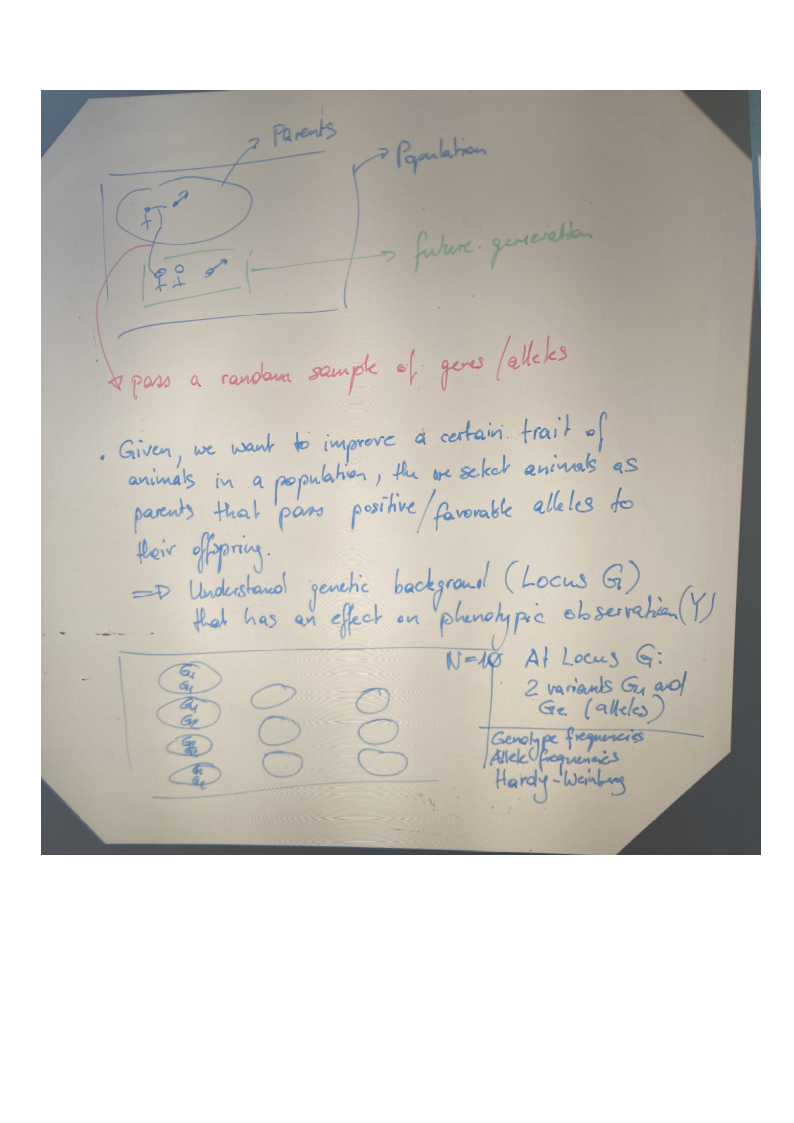 Parents
Population
future generation
pass a random sample of genes/alleles
• Given, we want to improve a certain trait of
animals in a population, the we select animals as
parents that pass positive/favorable alleles to
their offspring.
=> Understand genetic background (Locus G)
that has an effect on phenotypic observation (Y)
N=10 At Locus G:
2 variants G1 and
G2 (alleles)
Genotype frequencies
Allele frequencies
Hardy-Weinberg
G1
G1
G1
G2
G2